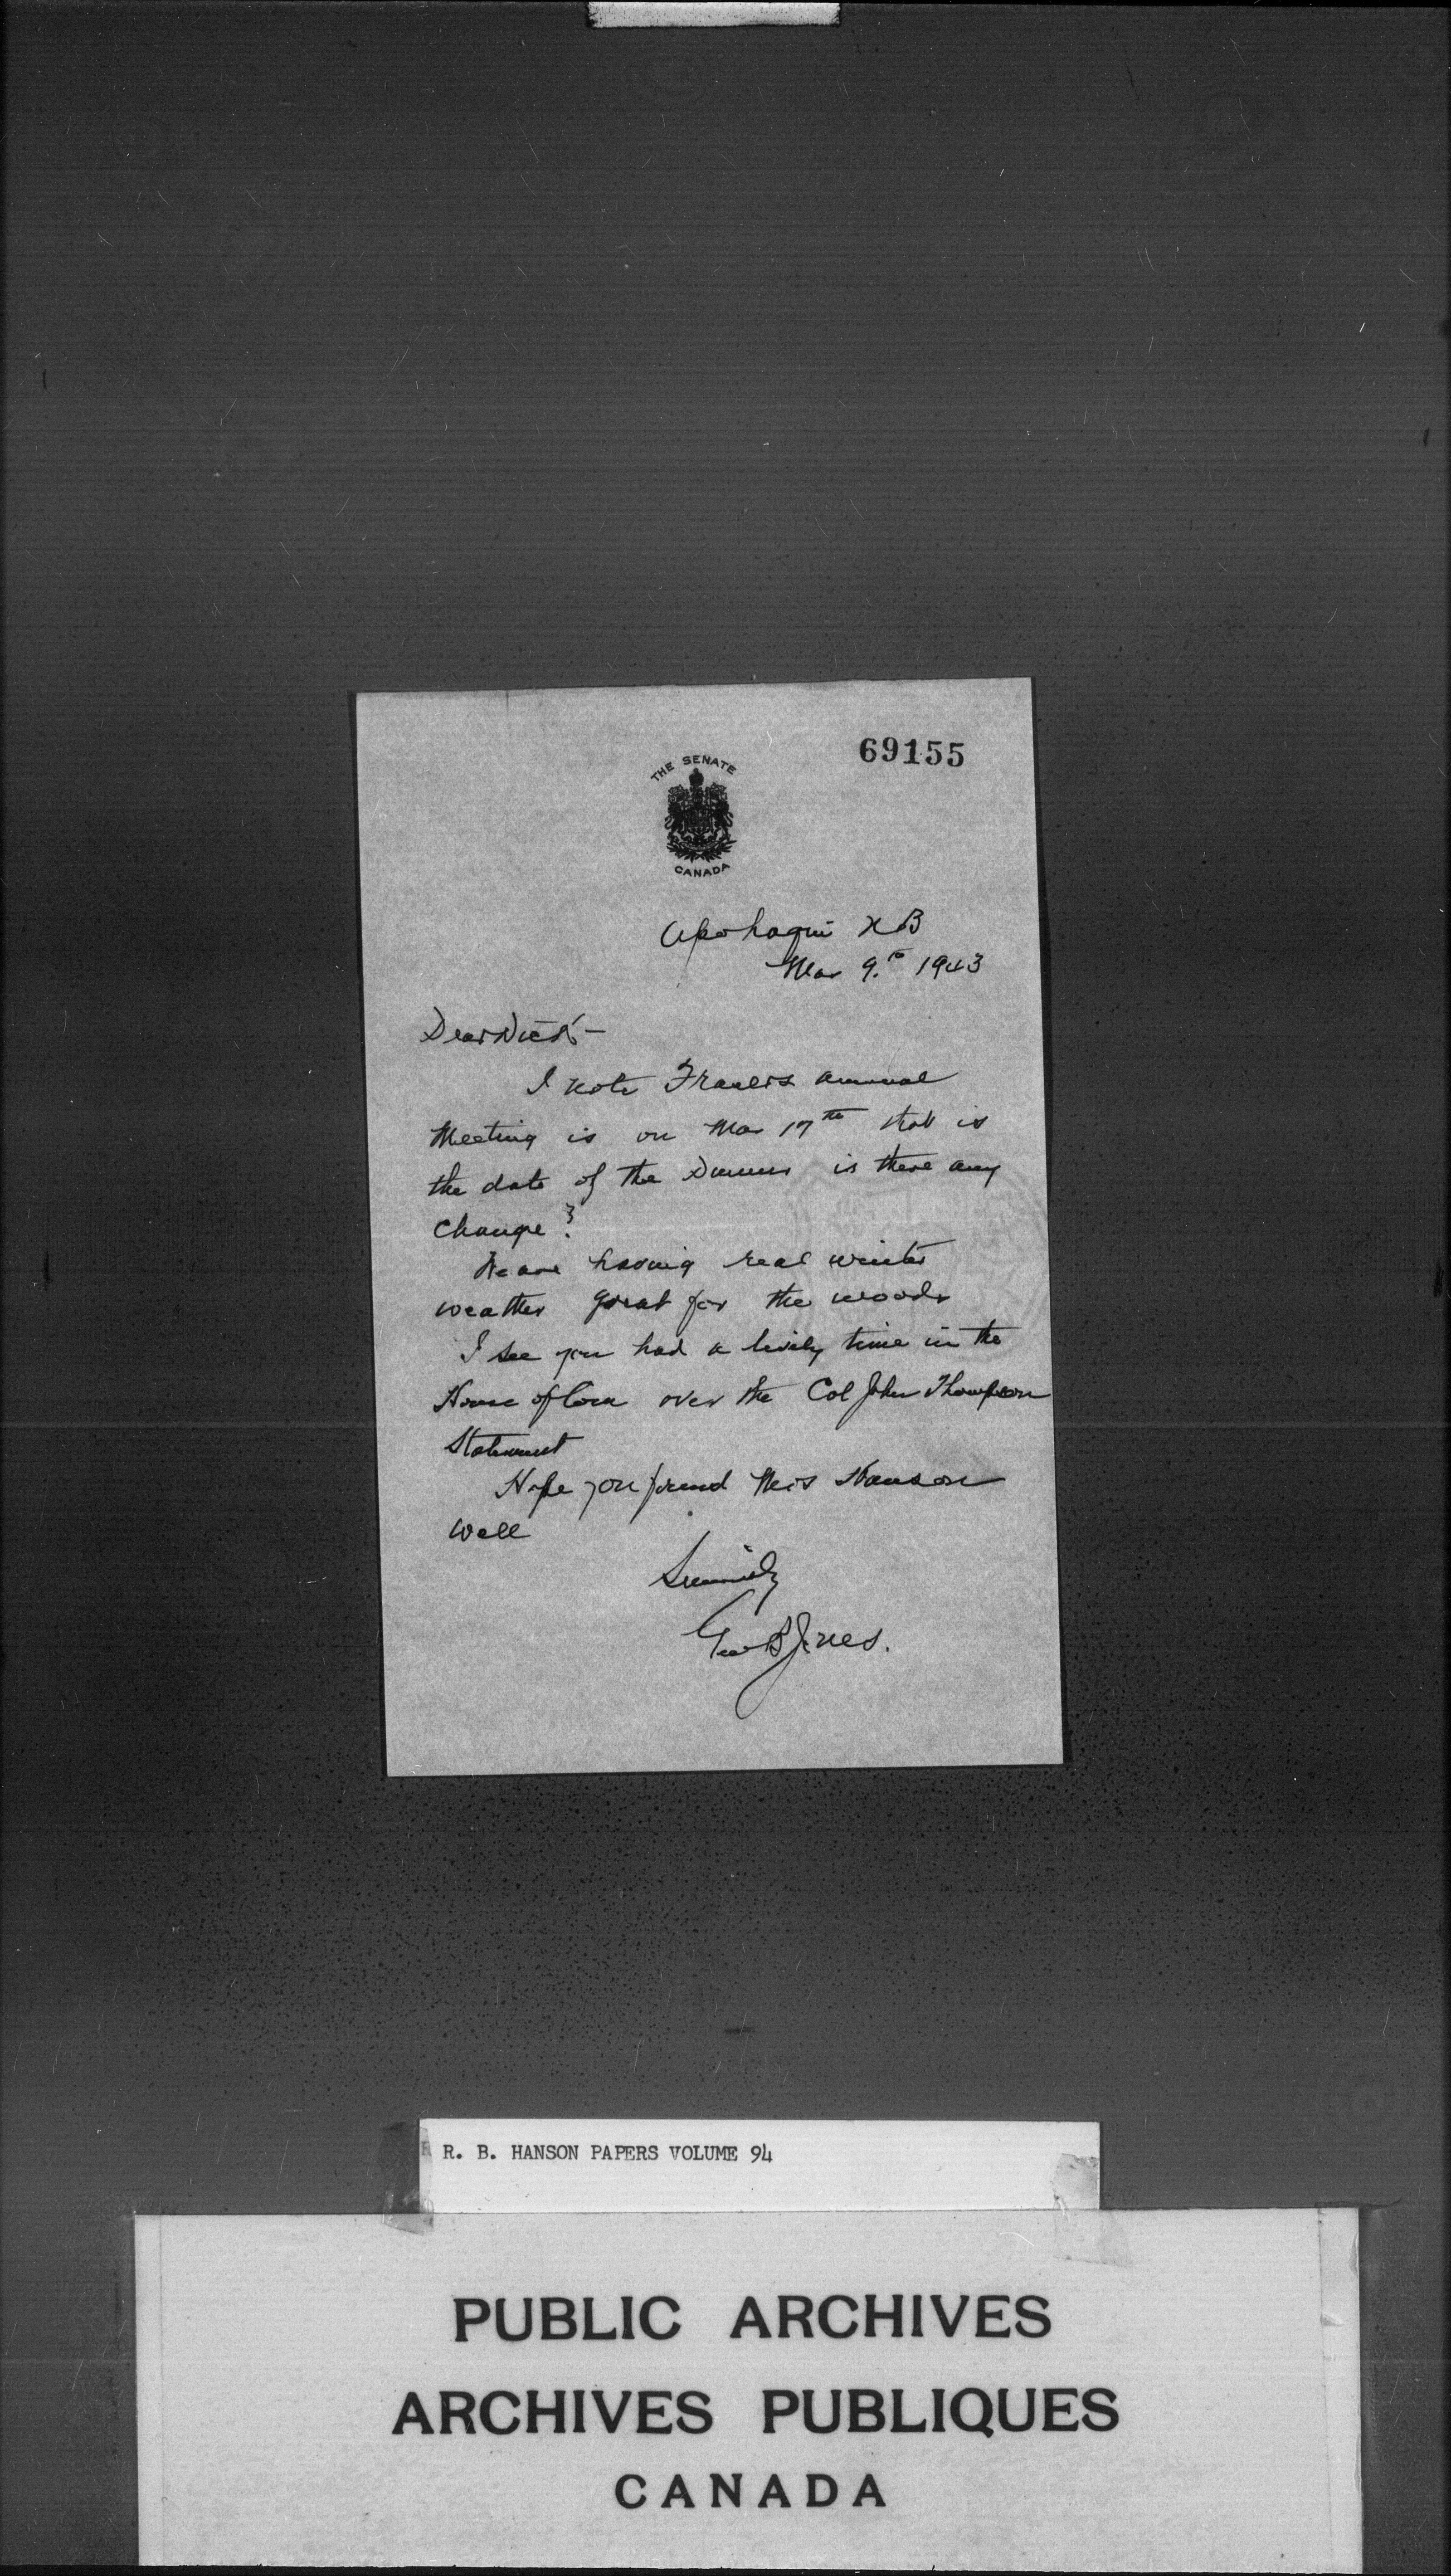 69155
THE SENATE
CANADA
Apohaqui NB
Mar 9.th 1943
Dear Dick –
I note Frasers annual
Meeting is on Mar 17th that is
the date of the Dinner is there any
change?
We are having real winter
weather great for the woods
I see you had a lively time in the
House of Com over the Col John Thompson
Statement
Hope you found Mrs Hanson
well
Sincerely
Geo B Jones.
R. B. HANSON PAPERS VOLUME 94
PUBLIC ARCHIVES
ARCHIVES PUBLIQUES
CANADA